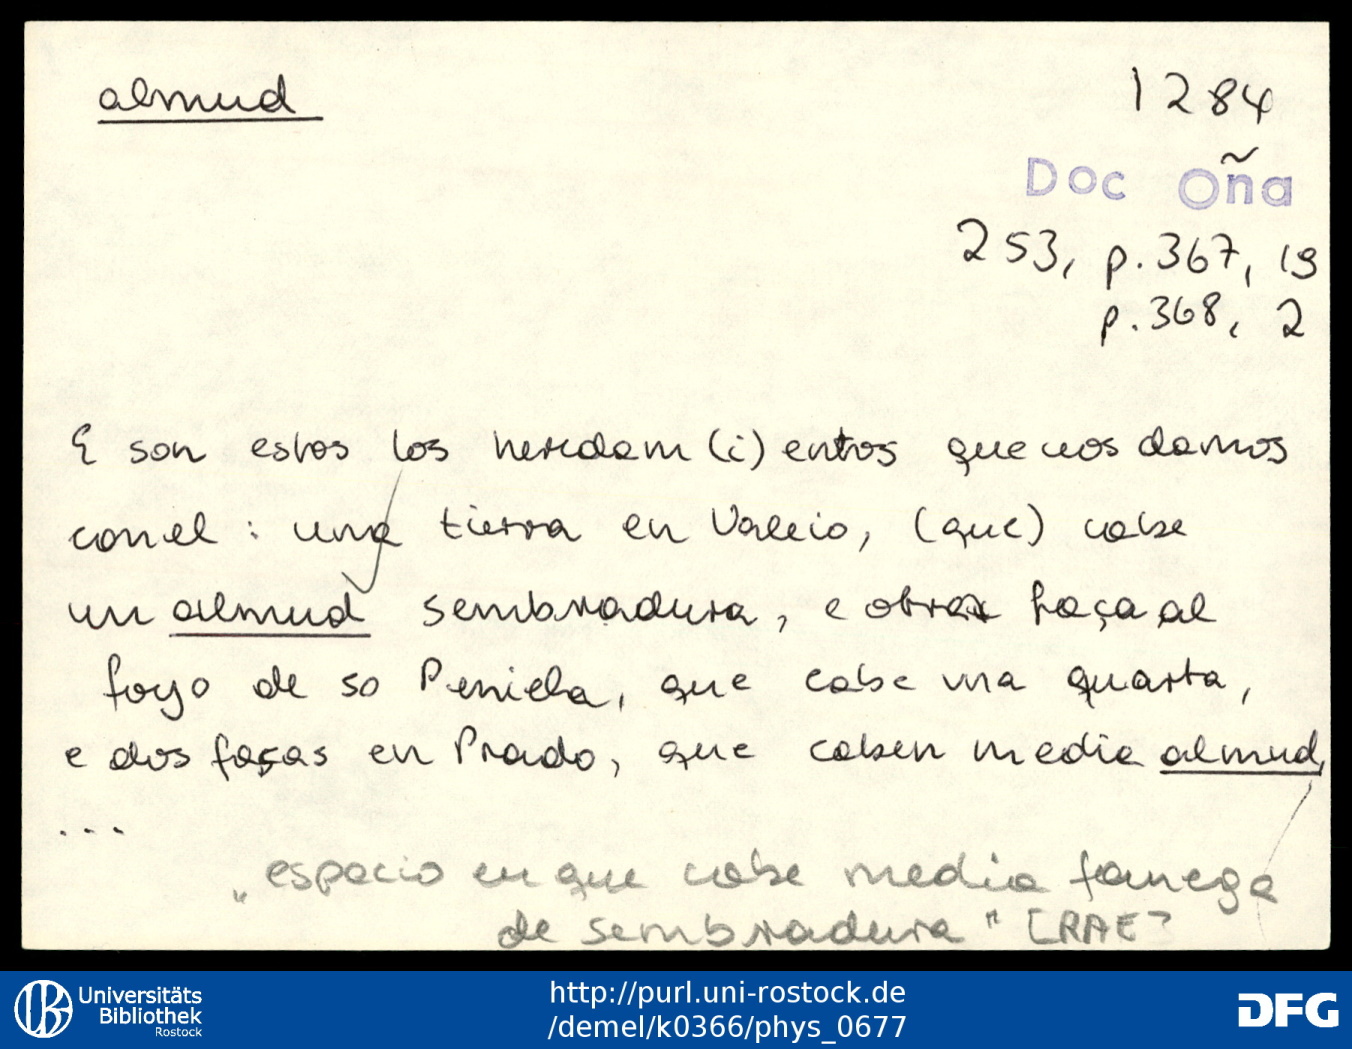 almud
1284
Doc Oña
253, p. 367, 19
p. 368, 2
E son estos los heredam(i)entos que uos damos
con el: una tierra en Valleio, (que) cabe
un almud sembradura, e otra faça al
foyo de so Peniella, que cabe una quarta,
e dos faças en Prado, que caben media almud,
...
„espacio en que cabe media fanega
de sembradura" [RAE]
Universitäts
Bibliothek
Rostock
http://purl.uni-rostock.de
/demel/k0366/phys_0677
DFG